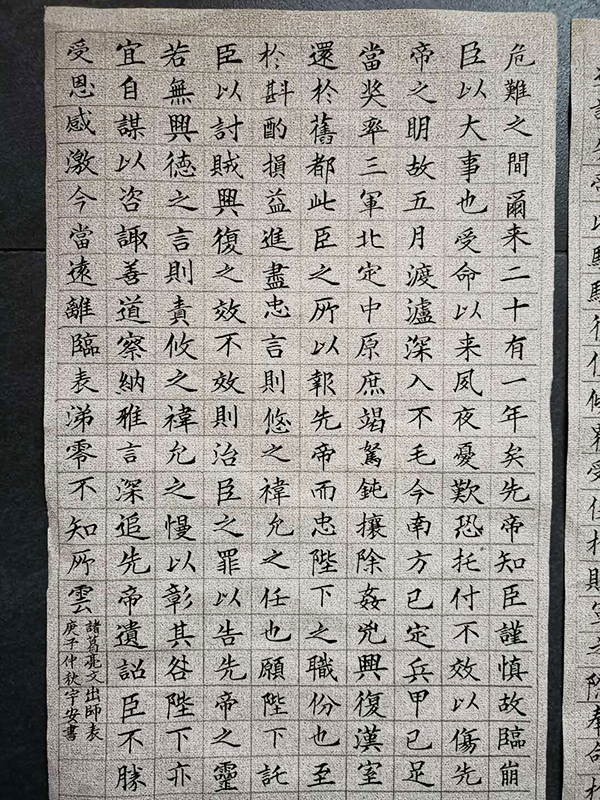 危難之間爾来二十有一年矣先帝知臣謹慎故臨崩
臣以大事也受命以来夙夜憂歎恐托付不效以傷先
帝之明故五月渡瀘深入不毛今南方已定兵甲已足
當奖率三軍北定中原庶竭駑鈍攘除姦兇興復漢室
還於舊都此臣之所以報先帝而忠陛下之職份也至
於斟酌損益進盡忠言則悠之禕允之任也願陛下託
臣以討賊興復之效不效則治臣之罪以告先帝之靈
若無興德之言則責攸之禕允之慢以彰其咎陛下亦
宜自謀以咨諏善道察納雅言深追先帝遺詔臣不勝
受恩感激今當遠離臨表涕零不知所雲
諸葛亮文出師表
庚子仲秋宇安書